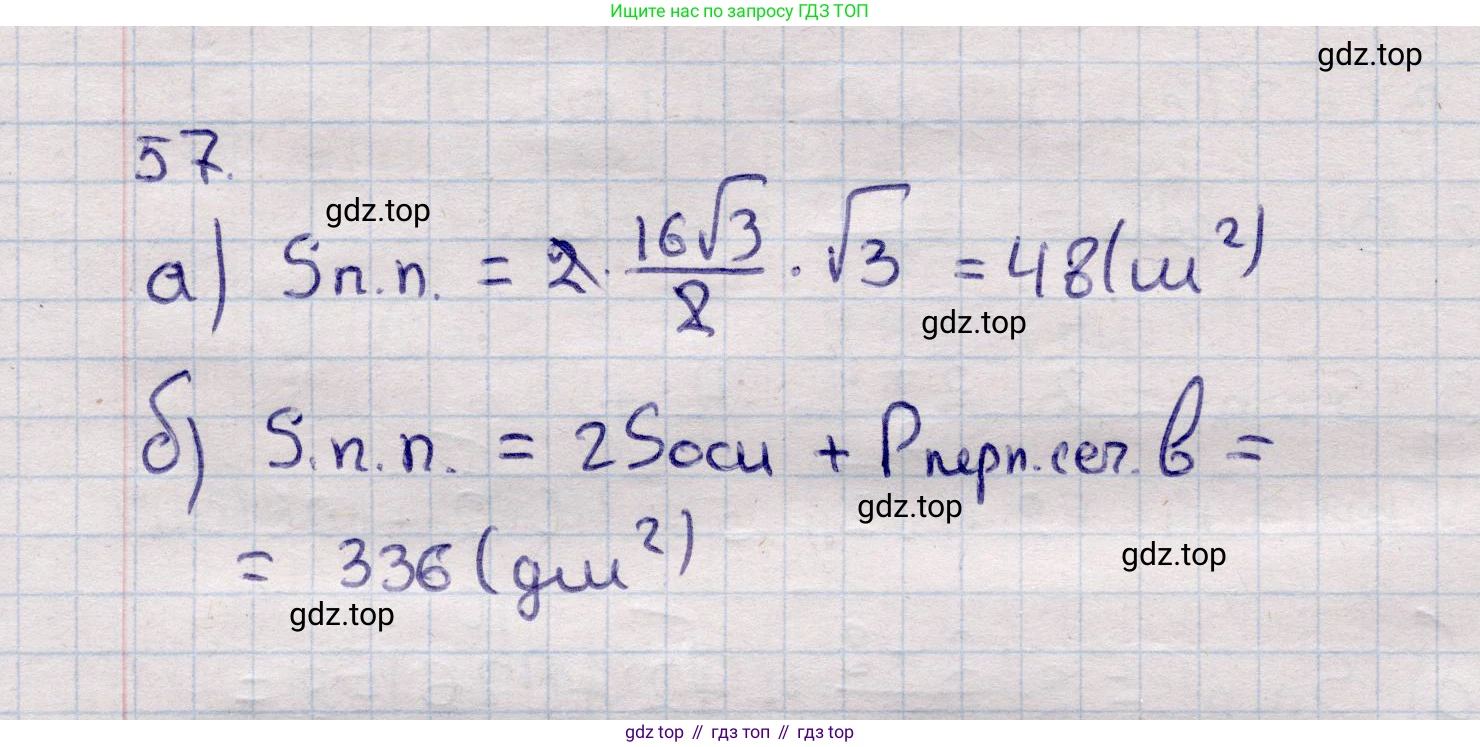 Ищите нас по запросу ГДЗ ТОП
gdz.top
57.
gdz.top
а) Sп.п. = 2 · 16√3/2 · √3 = 48 (м²)
gdz.top
б) S.п.п. = 2Sосн + Pперп.сеч. b =
gdz.top
= 336 (дм²)
gdz.top
gdz.top
gdz top // гдз топ // гдз top